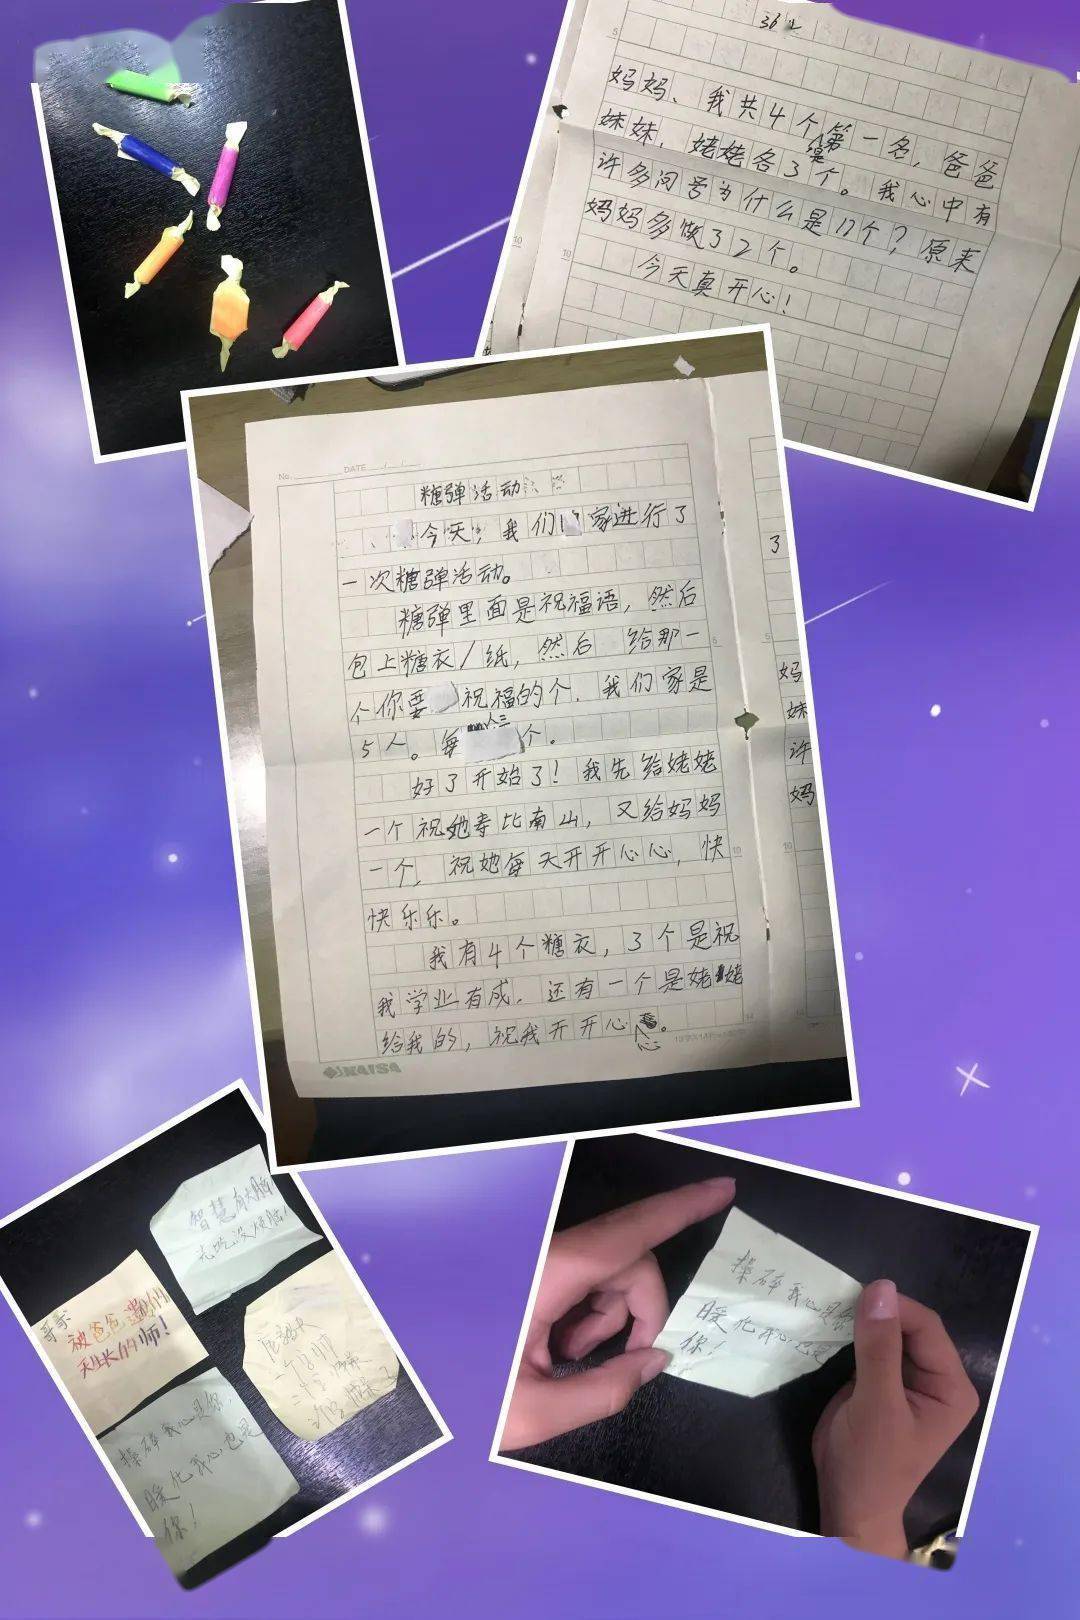 36
妈妈、我共4个第一名，爸爸
妹妹，姥姥各3个。我心中有
许多问号为什么是17个？原来
妈妈多做了2个。
今天真开心！
No.
DATE
糖弹活动
今天，我们家进行了
一次糖弹活动。
糖弹里面是祝福语，然后
包上糖衣/纸，然后给那一
个你要祝福的个，我们家是
5人。每个三个。
好了开始了！我先给姥姥
一个祝她寿比南山，又给妈妈
一个，祝她每天开开心心，快
快乐乐。
我有4个糖衣，3个是祝
我学业有成，还有一个是姥姥
给我的，祝我开开心心。
KAISA
3
妈
妹
许
妈
智慧有大脑
吉吃没烦脑！
哥哥
被爸爸
天生长的帅！
操碎我心是你，
暖化我心也是
你！
操碎我心是你
暖化我心也是
你！